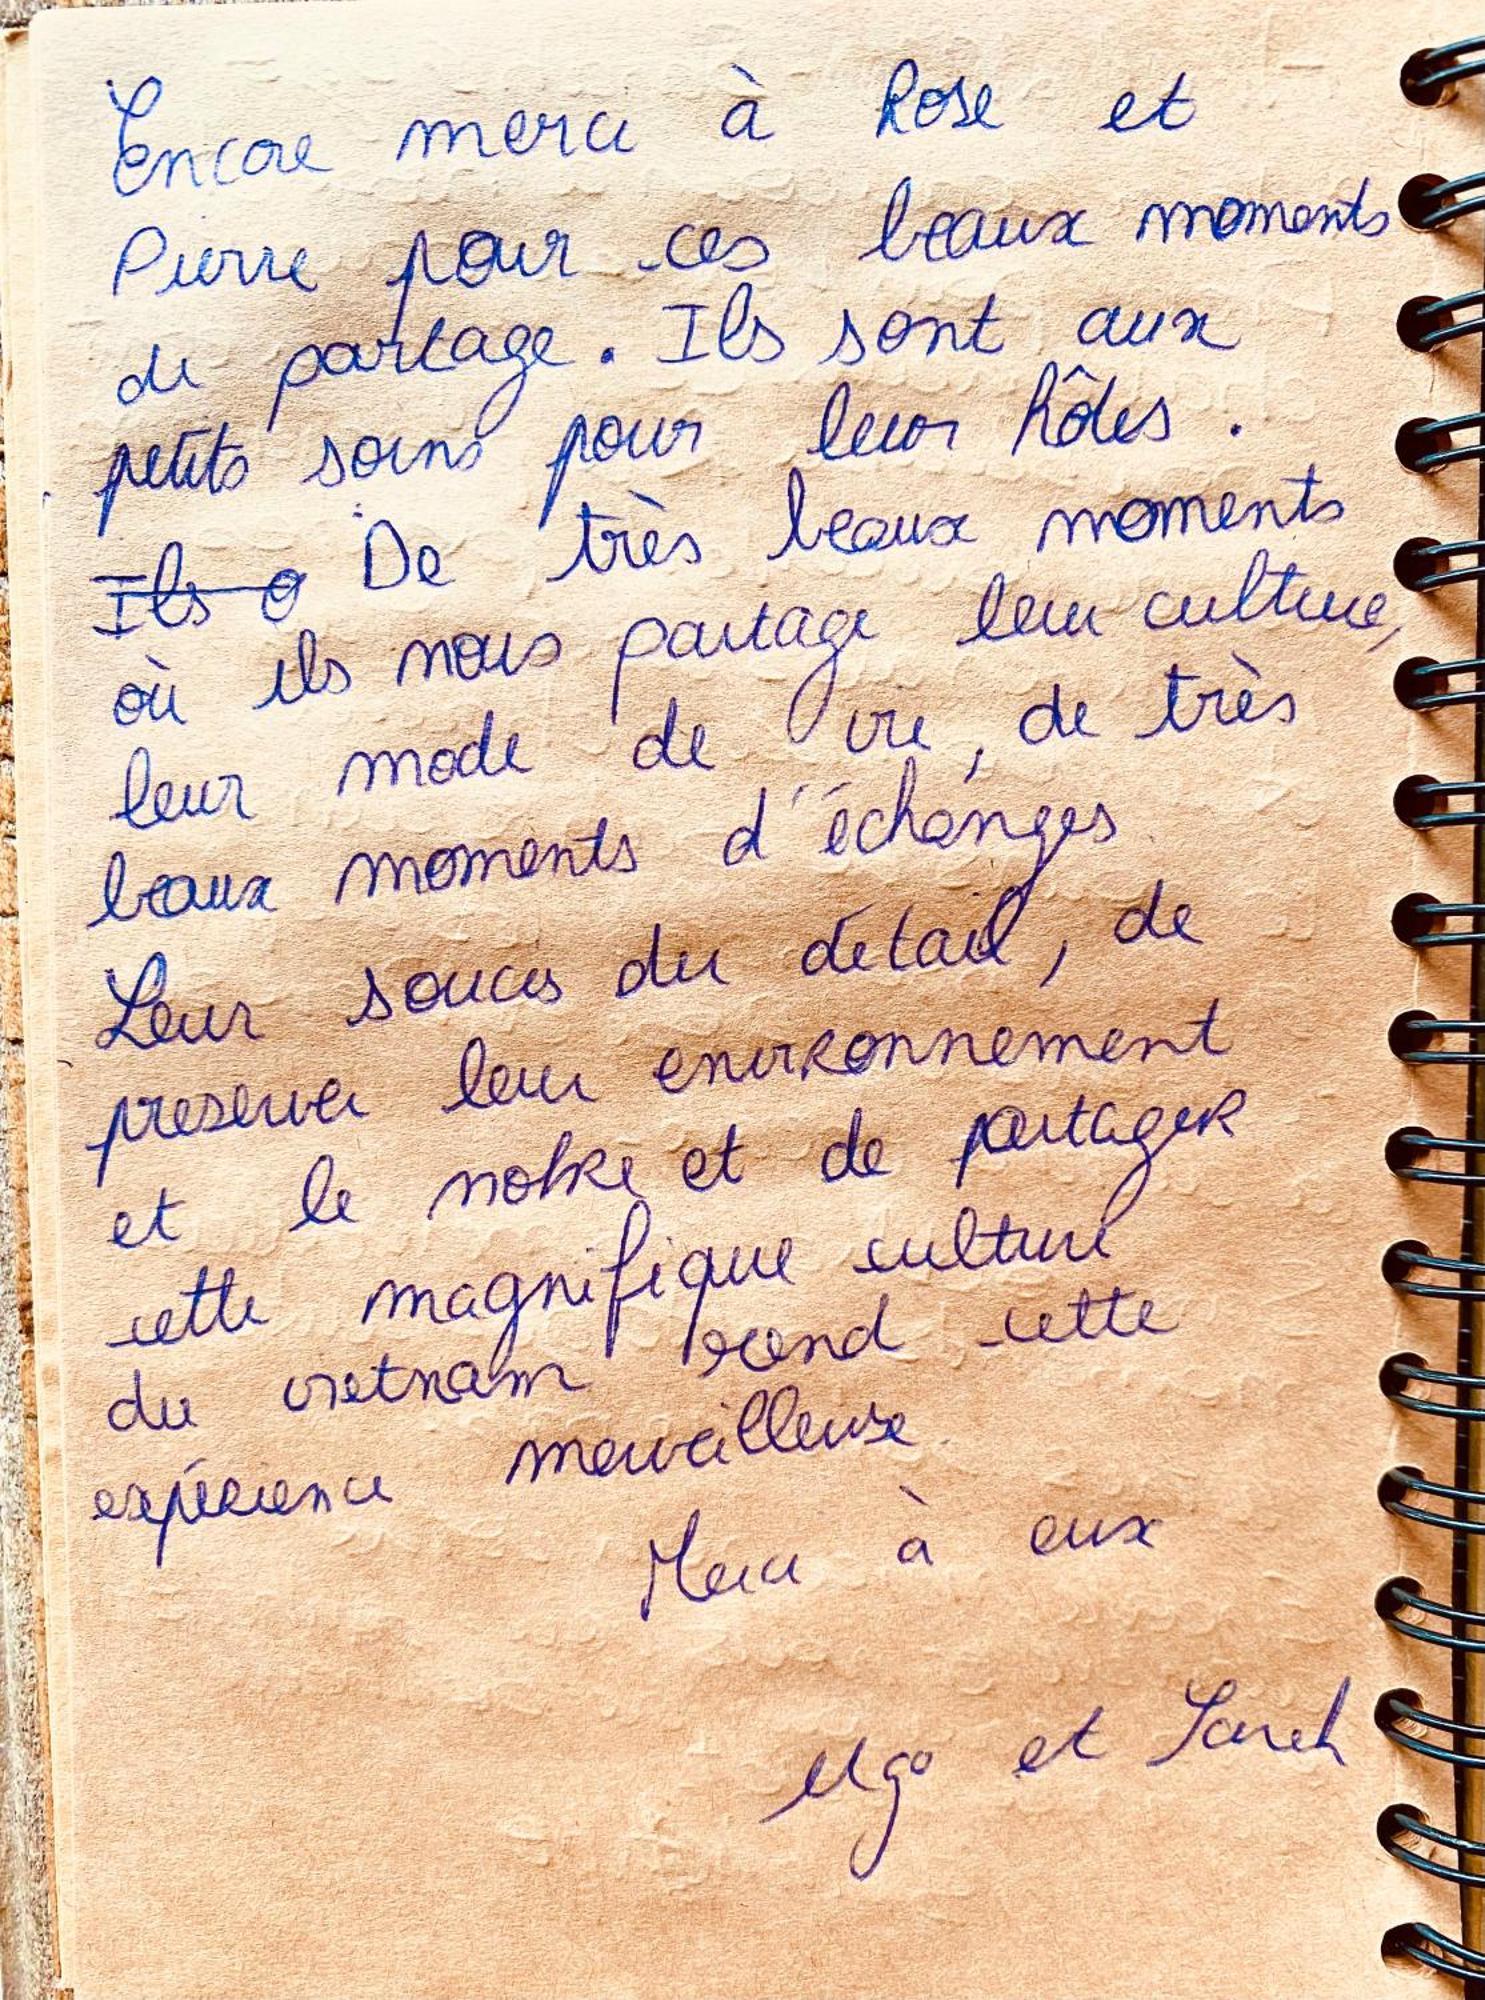 Encore merci à Rose et
Pierre pour ces beaux moments
de partage. Ils sont aux
petits soins pour leur hôtes.
Ils o De très beaux moments
où ils nous partage leur culture,
leur mode de vie, de très
beaux moments d'échanges
Leur soucis du détail, de
preserver leur environnement
et le notre et de partager
cette magnifique culture
du vietnam rend cette
expérience merveilleuse
Merci à eux
Ugo et Sarah